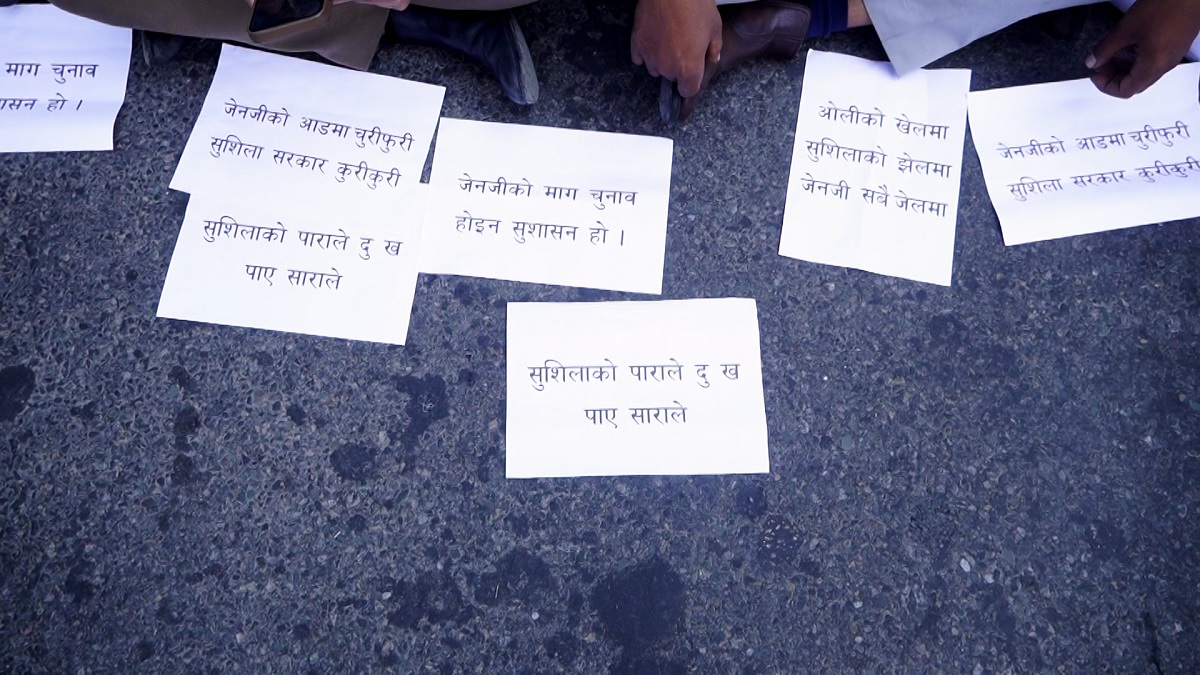 माग चुनाव
सन हो ।
जेनजीको आडमा चुरीफुरी
सुशिला सरकार कुरीकुरी
सुशिलाको पाराले दु ख
पाए साराले
जेनजीको माग चुनाव
होइन सुशासन हो ।
सुशिलाको पाराले दु ख
पाए साराले
ओलीको खेलमा
सुशिलाको झेलमा
जेनजी सबै जेलमा
जेनजीको आडमा चुरीफुरी
सुशिला सरकार कुरीकुरी